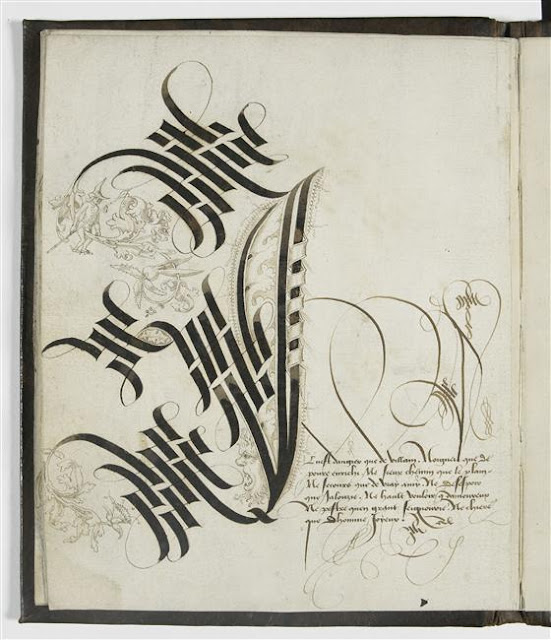 Il nest dangier que de villain. Norgueil que de
poure enrichi. Ne sieur chemin que le plain.
Ne secours que de vray amy. Ne desespoir
que Jalouzie. Ne hault vouloir q damoureux
Ne pestre quen grant seigneurie. Ne chiere
que dhomme Joyeux.